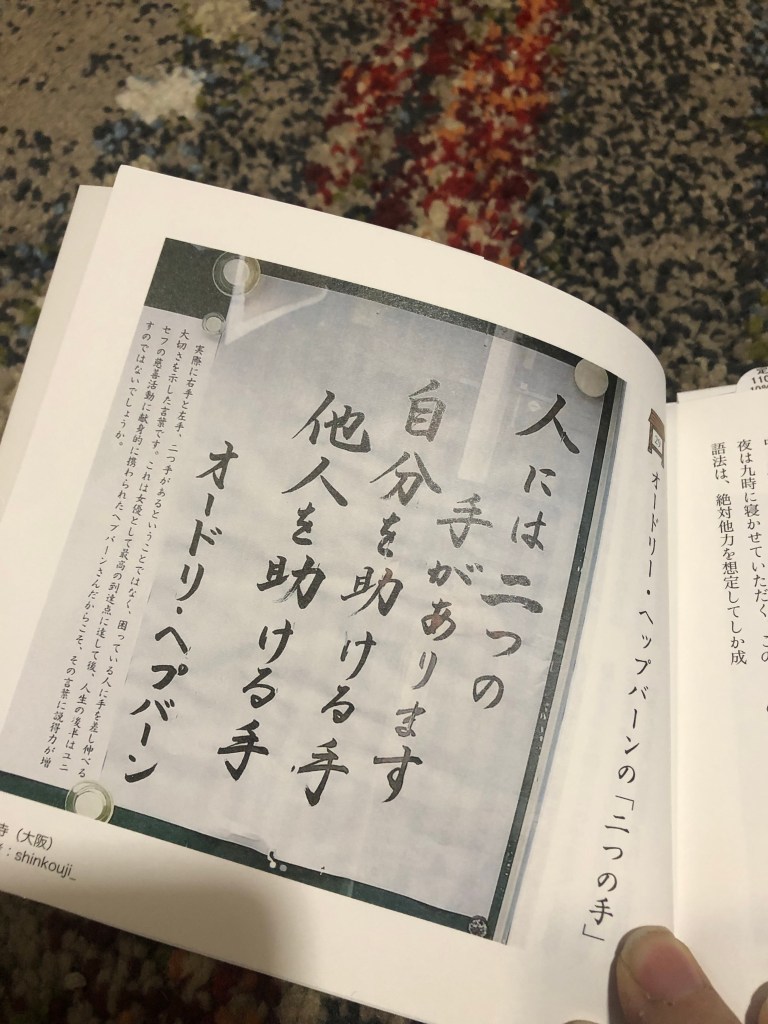 夜は九時に寝かせていただく。この
語法は、絶対他力を想定してしか成
オードリー・ヘップバーンの「二つの手」
人には二つの
手があります
自分を助ける手
他人を助ける手
オードリ・ヘプバーン
実際に右手と左手、二つ手があるということではなく、困っている人に手を差し伸べる
大切さを示した言葉です。これは女優として最高の到達点に達して後、人生の後半はユニ
セフの慈善活動に献身的に携わられたヘプバーンさんだからこそ、その言葉に説得力が増
すのではないでしょうか。
寺（大阪）
：shinkouji_